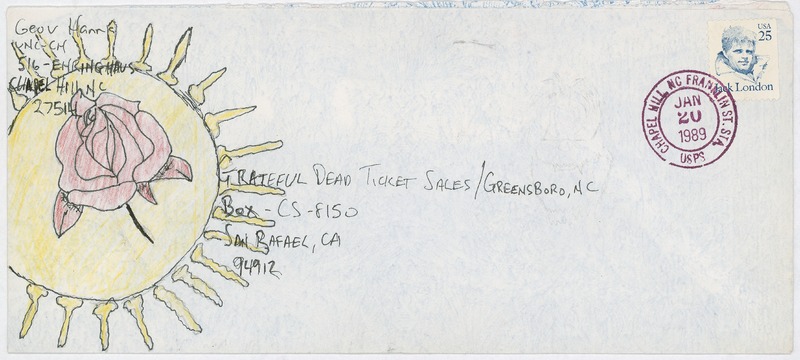 Geov Hanna
UNC-CH
516-EHRINGHAUS
CHAPEL HILL, NC
27514
USA
25
Jack London
CHAPEL HILL, NC FRANKLIN ST. STA.
JAN
20
1989
USPS
GRATEFUL DEAD TICKET SALES/GREENSBORO, NC
Box - CS-8150
SAN RAFAEL, CA
94912